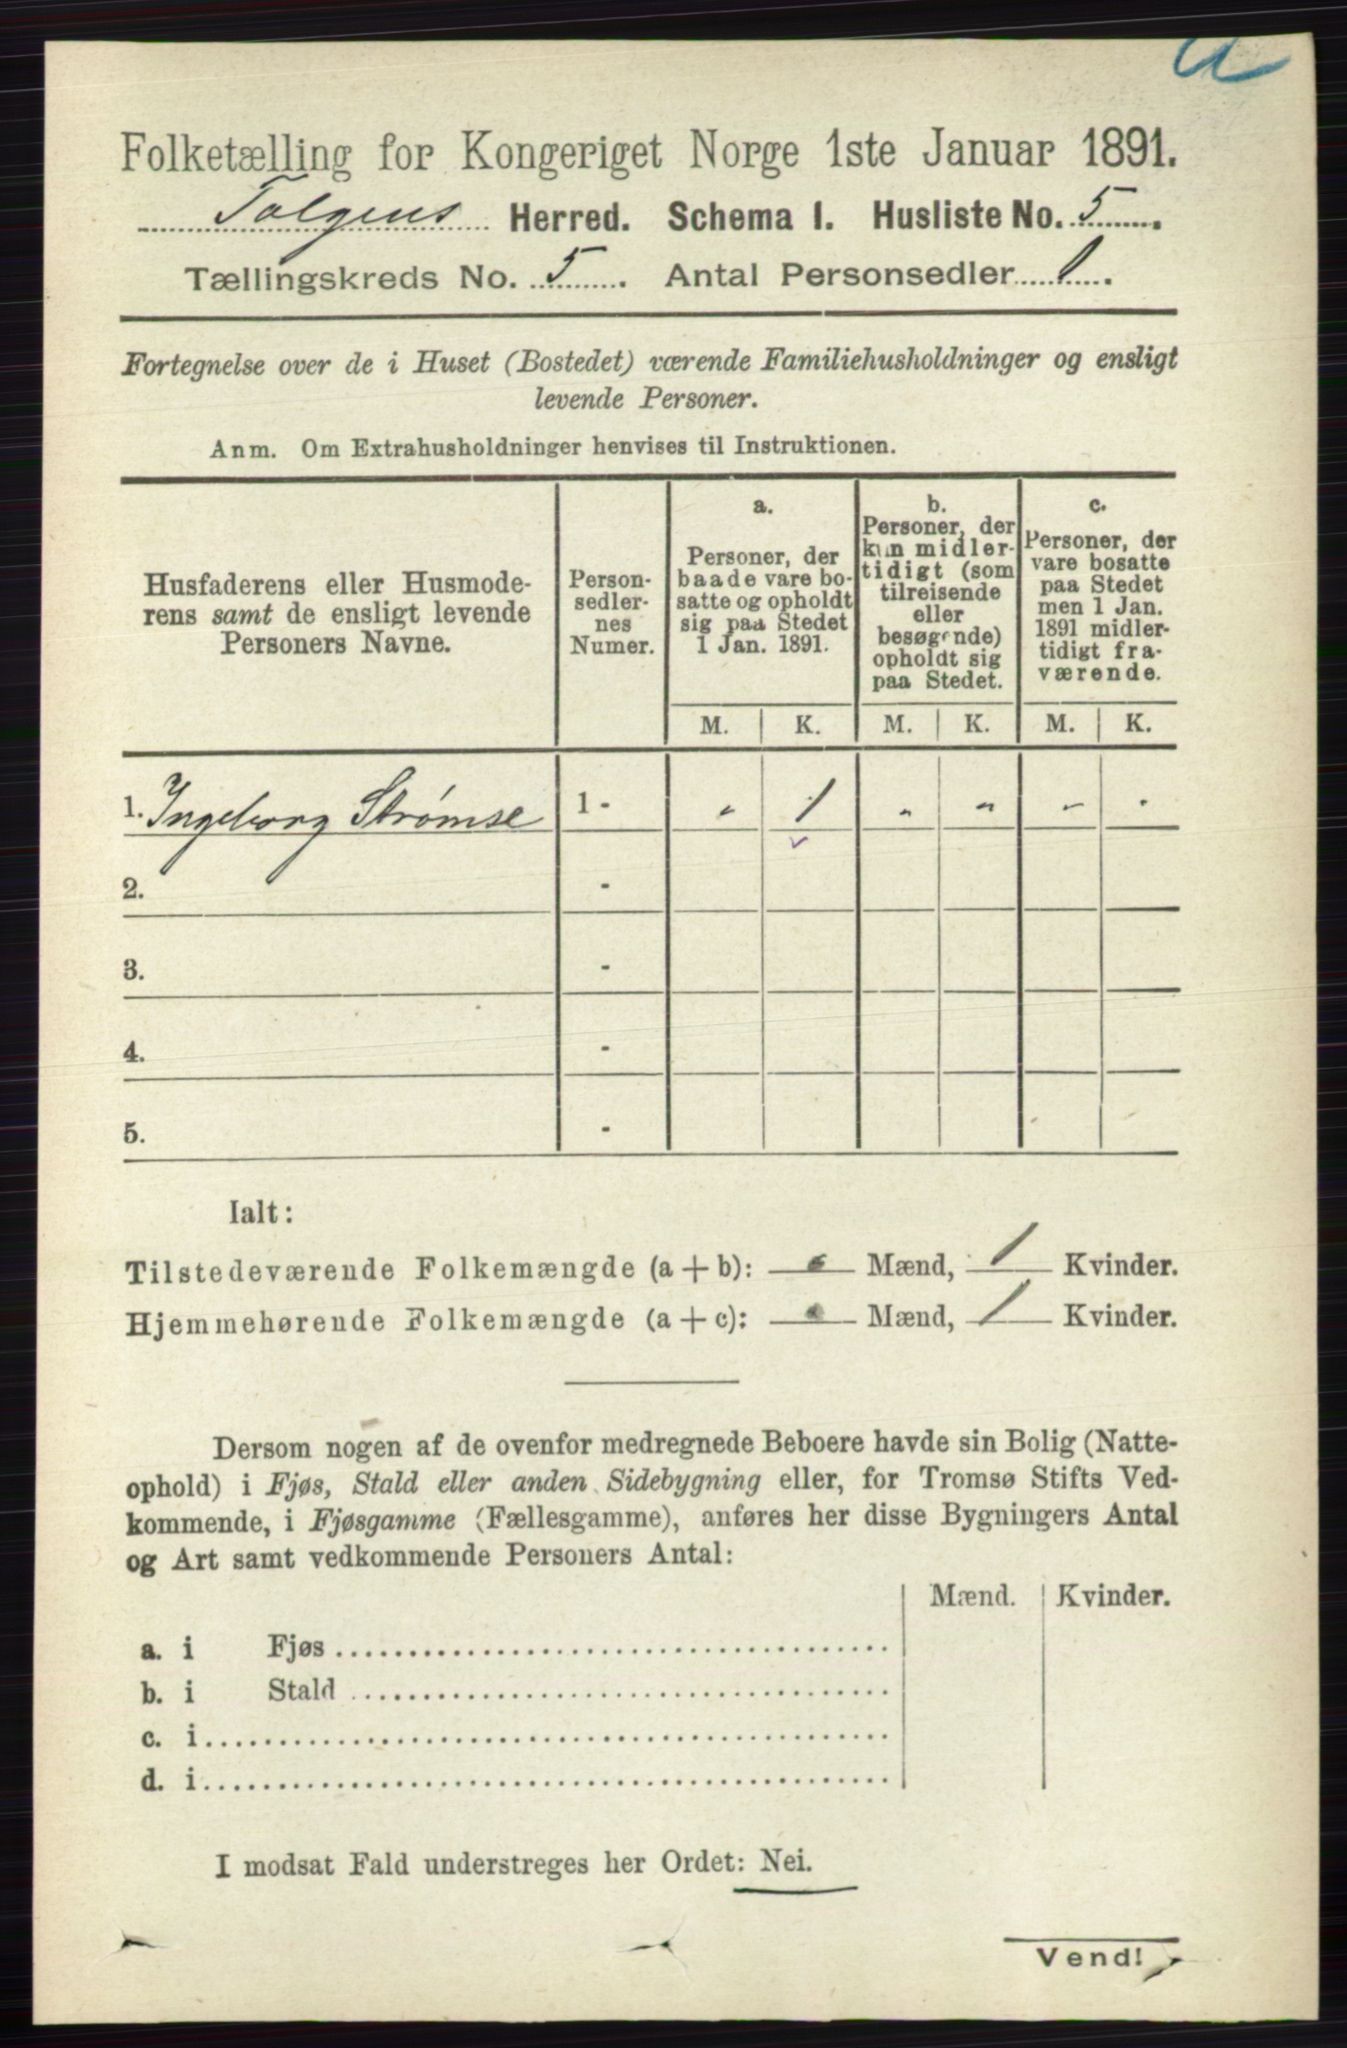 Folketælling for Kongeriget Norge 1ste Januar 1891.
Tolgens Herred. Schema I. Husliste No. 5.
Tællingskreds No. 5. Antal Personsedler 1.
Fortegnelse over de i Huset (Bostedet) værende Familiehusholdninger og ensligt
levende Personer.
Anm. Om Extrahusholdninger henvises til Instruktionen.
Husfaderens eller Husmode-
rens samt de ensligt levende
Personers Navne.
Person-
sedler-
nes
Numer.
a.
Personer, der
baade vare bo-
satte og opholdt
sig paa Stedet
1 Jan. 1891.
b.
Personer, der
kun midler-
tidigt (som
tilreisende
eller
besøgende)
opholdt sig
paa Stedet.
c.
Personer, der
vare bosatte
paa Stedet
men 1 Jan.
1891 midler-
tidigt fra-
værende.
M. K. M. K. M. K.
1. Ingeborg Strømse 1 - " 1 " " " "
2. -
3. -
4. -
5. -
Ialt:
Tilstedeværende Folkemængde (a + b): Mænd, 1 Kvinder.
Hjemmehørende Folkemængde (a + c): Mænd, 1 Kvinder.
Dersom nogen af de ovenfor medregnede Beboere havde sin Bolig (Natte-
ophold) i Fjøs, Stald eller anden Sidebygning eller, for Tromsø Stifts Ved-
kommende, i Fjøsgamme (Fællesgamme), anføres her disse Bygningers Antal
og Art samt vedkommende Personers Antal:
Mænd. Kvinder.
a. i Fjøs
b. i Stald
c. i
d. i
I modsat Fald understreges her Ordet: Nei.
Vend!